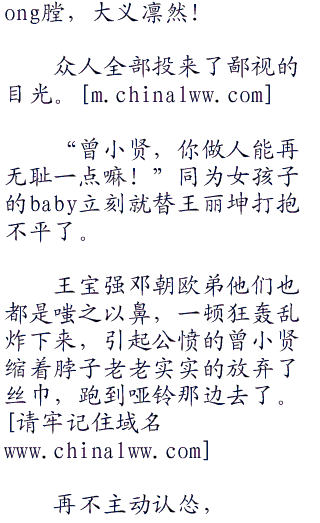 ong膛，大义凛然！
众人全部投来了鄙视的
目光。[m.china1ww.com]
“曾小贤，你做人能再
无耻一点嘛！”同为女孩子
的baby立刻就替王丽坤打抱
不平了。
王宝强邓朝欧弟他们也
都是嗤之以鼻，一顿狂轰乱
炸下来，引起公愤的曾小贤
缩着脖子老老实实的放弃了
丝巾，跑到哑铃那边去了。
[请牢记住域名
www.china1ww.com]
再不主动认怂，